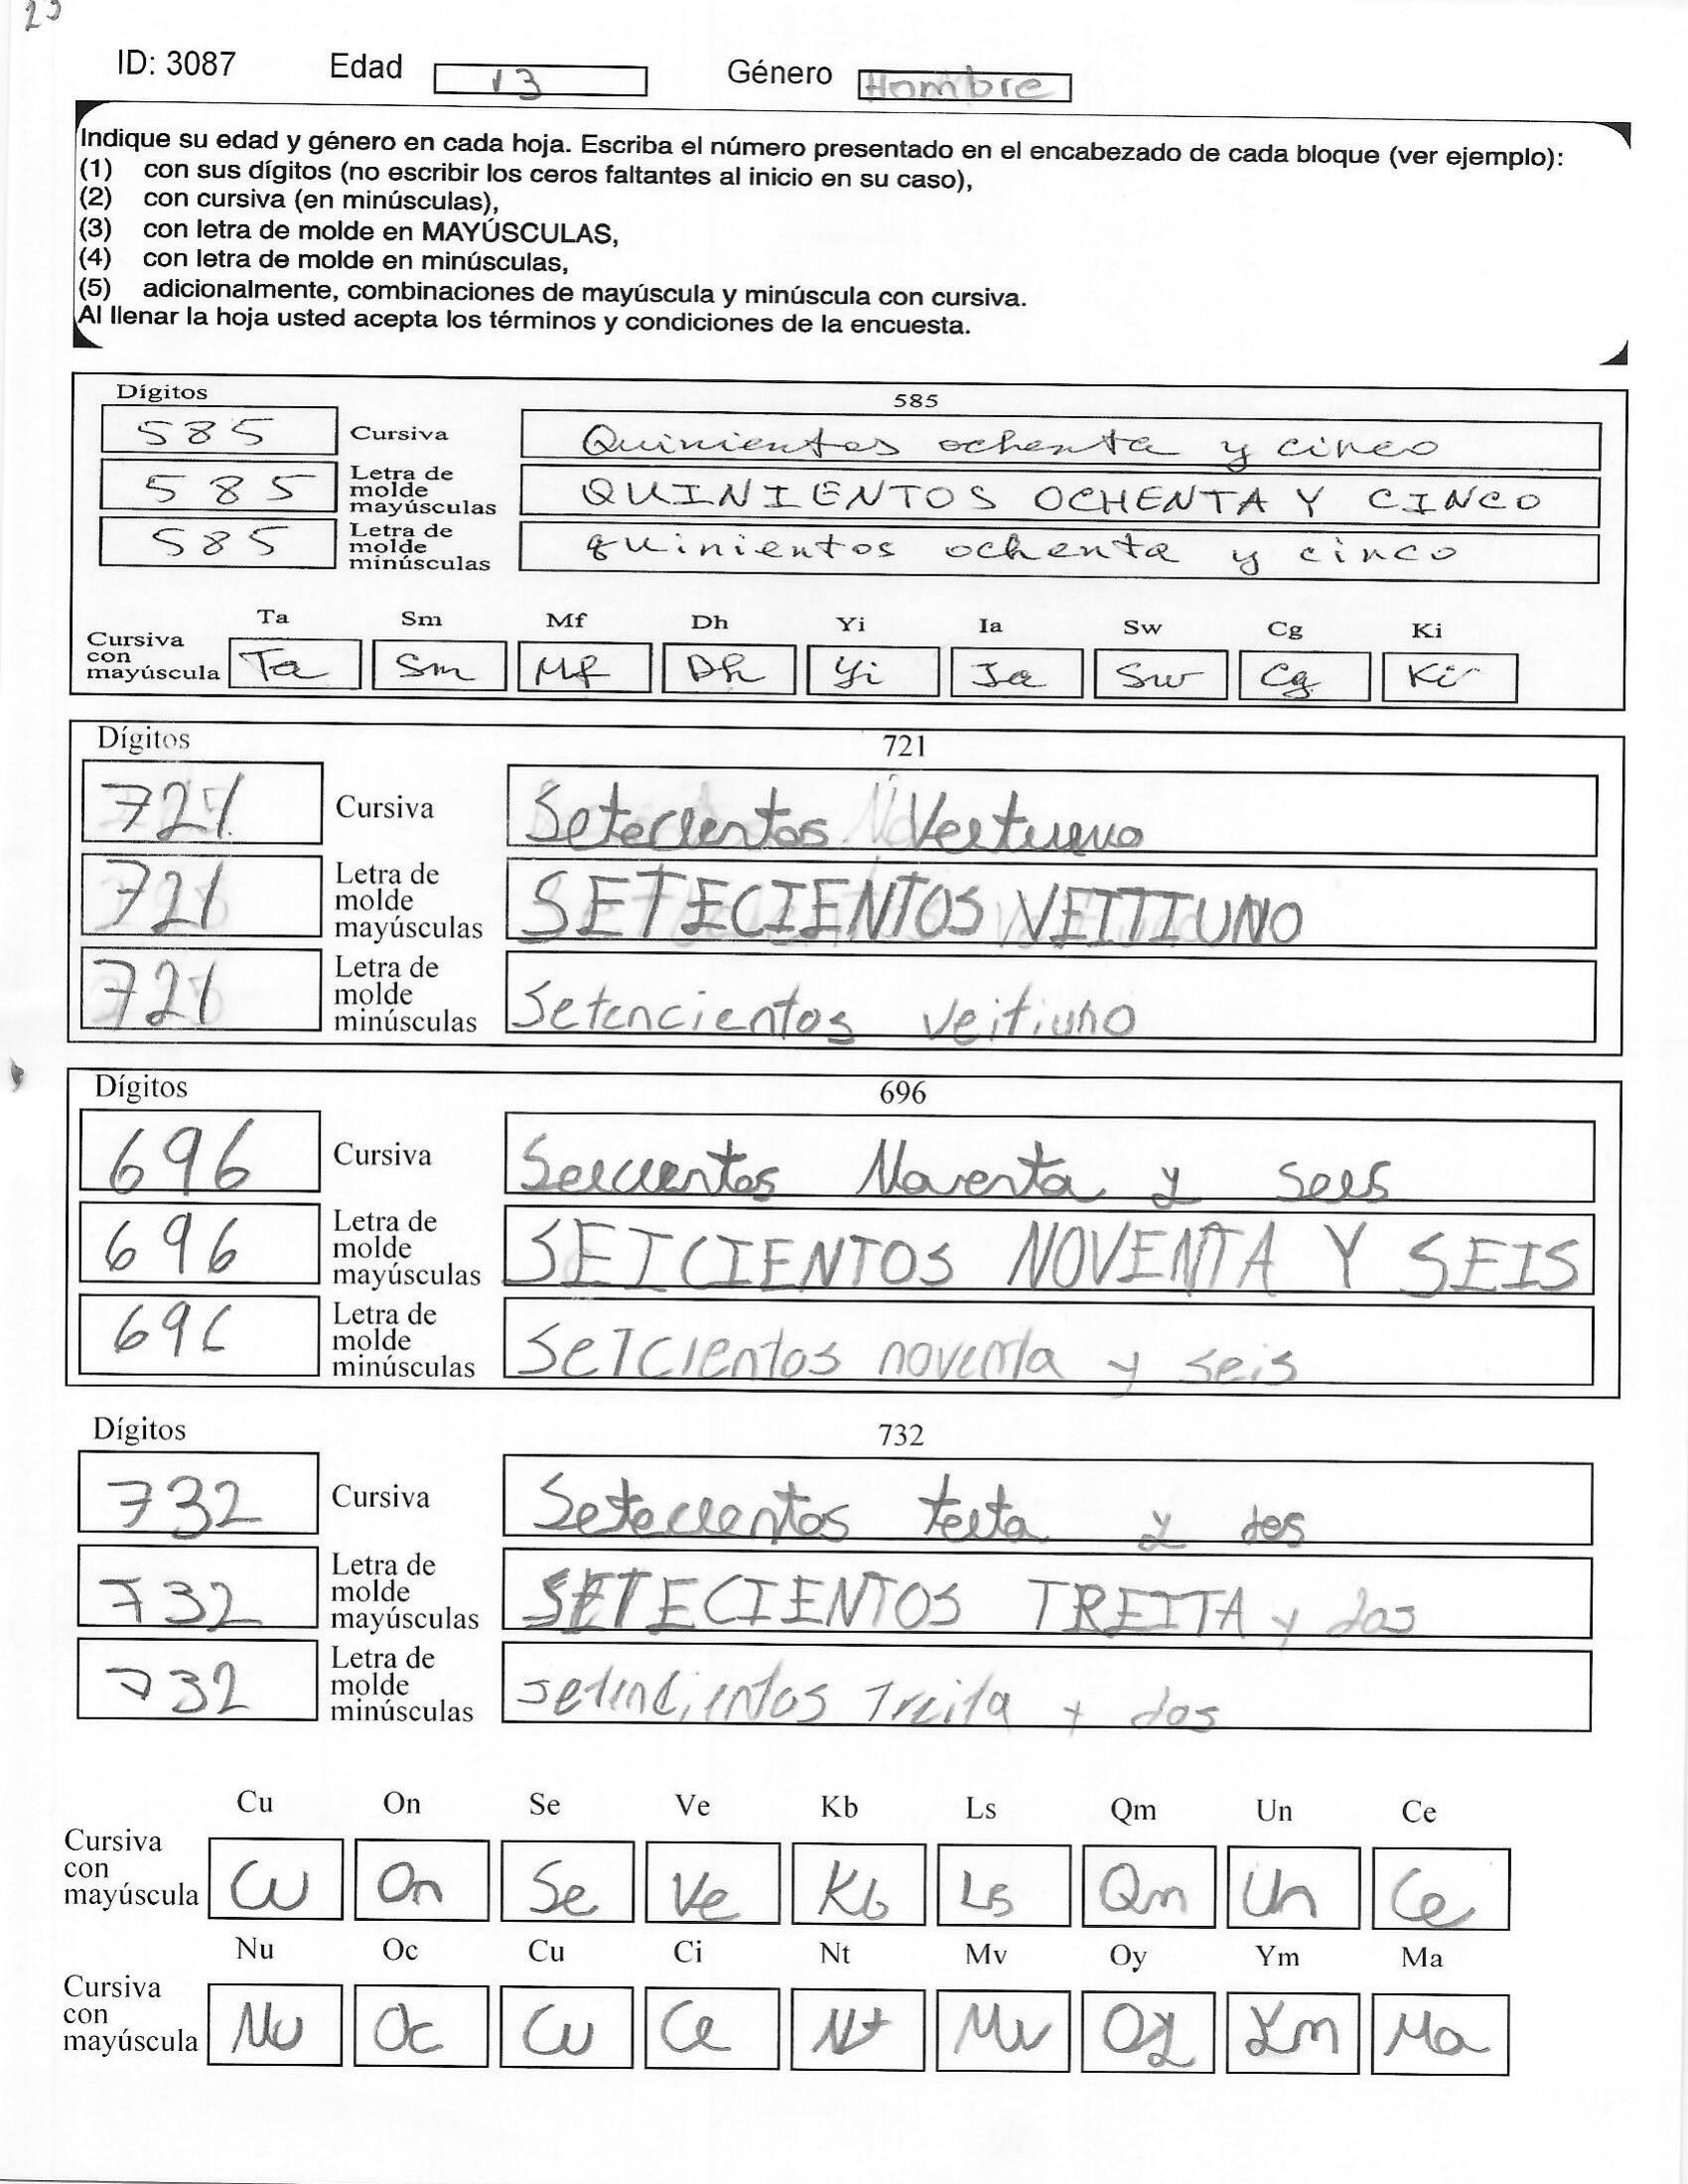 23
ID: 3087 Edad 13 Género Hombre
Indique su edad y género en cada hoja. Escriba el número presentado en el encabezado de cada bloque (ver ejemplo):
(1) con sus dígitos (no escribir los ceros faltantes al inicio en su caso),
(2) con cursiva (en minúsculas),
(3) con letra de molde en MAYÚSCULAS,
(4) con letra de molde en minúsculas,
(5) adicionalmente, combinaciones de mayúscula y minúscula con cursiva.
Al llenar la hoja usted acepta los términos y condiciones de la encuesta.
Dígitos 585
585 Cursiva Quinientos ochenta y cinco
585 Letra de molde mayúsculas QUINIENTOS OCHENTA Y CINCO
585 Letra de molde minúsculas quinientos ochenta y cinco
Ta Sm Mf Dh Yi Ia Sw Cg Ki
Cursiva con mayúscula Ta Sm Mf Dh Yi Ia Sw Cg Ki
Dígitos 721
721 Cursiva Setecientos Veituno
721 Letra de molde mayúsculas SETECIENTOS VEITIUNO
721 Letra de molde minúsculas Setencientos veitiuno
Dígitos 696
696 Cursiva Seicientos Noventa y seis
696 Letra de molde mayúsculas SEICIENTOS NOVENTA Y SEIS
696 Letra de molde minúsculas SeIcientos noventa y seis
Dígitos 732
732 Cursiva Setecientos teita y dos
732 Letra de molde mayúsculas SETECIENTOS TREITA y dos
732 Letra de molde minúsculas setencientos Treita y dos
Cu On Se Ve Kb Ls Qm Un Ce
Cursiva con mayúscula Cu On Se Ve Kb Ls Qm Un Ce
Nu Oc Cu Ci Nt Mv Oy Ym Ma
Cursiva con mayúscula Nu Oc Cu Ce Nt Mv Oy Ym Ma